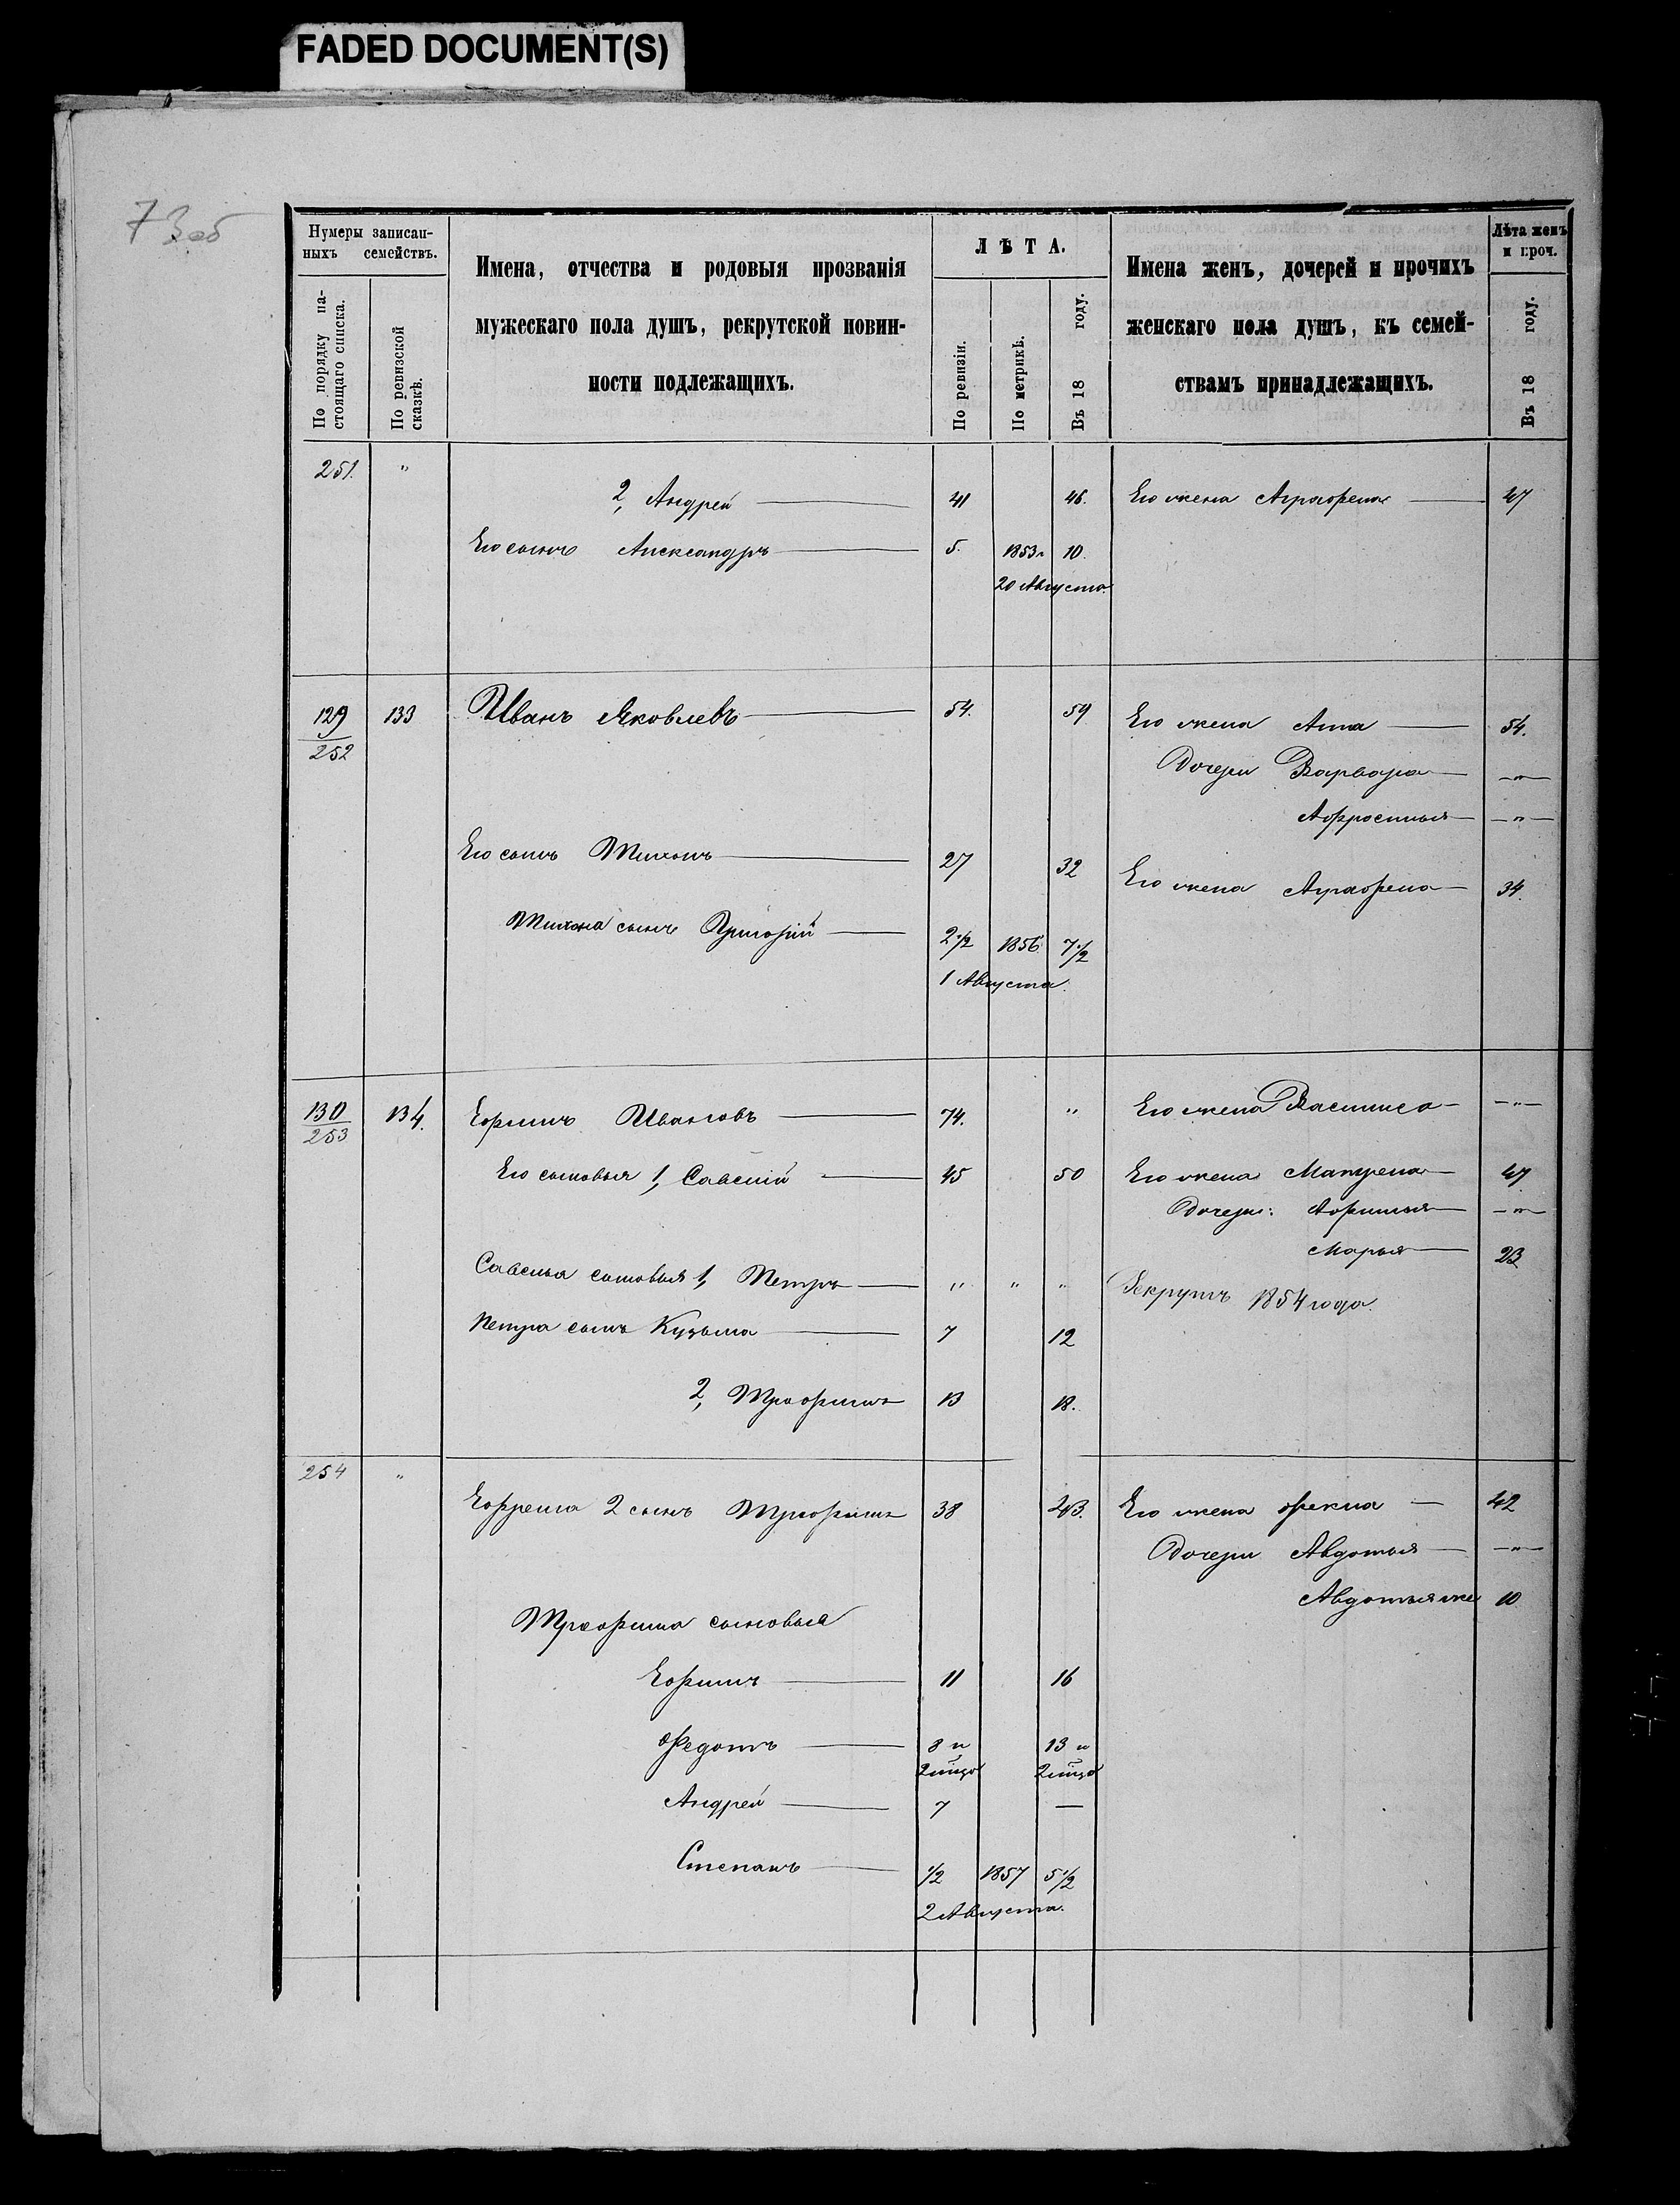 FADED DOCUMENT(S)
73об
Нумеры записан-
ныхъ семействъ.
По порядку на-
стоящаго списка.
По ревизской
сказкѣ.
Имена, отчества и родовыя прозванія
мужескаго пола душъ, рекрутской повин-
ности подлежащихъ.
ЛѢТА.
По ревизіи.
По метрикѣ.
Въ 18 году.
Имена женъ, дочерей и прочихъ
женскаго пола душъ, къ семей-
ствамъ принадлежащихъ.
Лѣта женъ
и проч.
Въ 18 году.
251. "
2, Андрей — 41 46. Его жена Аграфена — 47
Его сынъ Александръ — 5. 1853г 10.
20 Августа.
129 133 Иванъ Яковлевъ — 54. 59 Его жена Анна — 54.
252
Дочери Варвара — — " —
Афросинья — — " —
Его сынъ Тихонъ — 27 32 Его жена Аграфена — 34.
Тихона сынъ Григорій — 2 1/2 1856. 7 1/2
1 Августа.
130 134. Ефимъ Ивановъ — 74. " Его жена Василиса — — " —
253
Его сыновья 1, Савелій — 45 50 Его жена Матрена — 47
Дочери: Афимья — — " —
Марья — 23
Савелья сыновья 1, Петръ — " " " Рекрутъ 1854 года.
Петра сынъ Кузьма — 7 12
2, Трофимъ 13 18.
254 "
2 сынъ Трофимъ 38 43. Его жена Фекла — 42
Дочери Авдотья — — " —
Авдотья же 10
Трофима сыновья
Ефимъ — 11 16
Федотъ — 8 и 13 и
Андрей — 7 —
Степанъ — 1/2 1857 5 1/2
2 Августа.